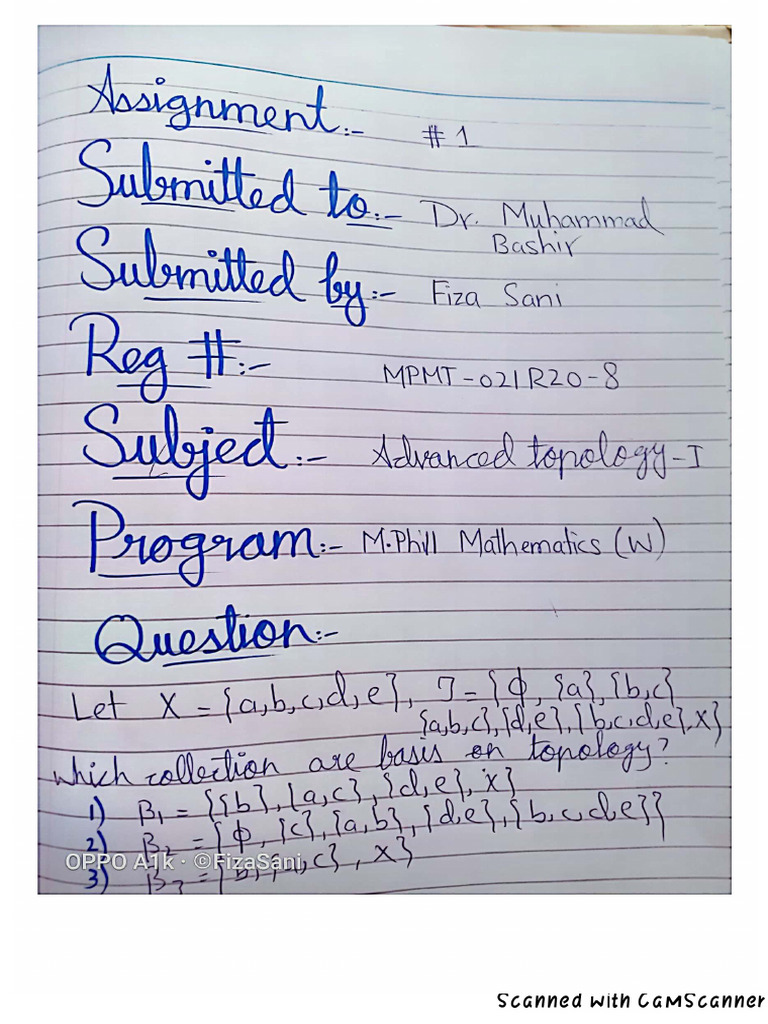 Assignment:- #1
Submitted to:- Dr. Muhammad
Bashir
Submitted by:- Fiza Sani
Reg #:- MPMT-021R20-8
Subject:- Advanced topology-I
Program:- M.Phill Mathematics (W)
Question:-
Let X = {a,b,c,d,e}, J = {ϕ, {a}, {b,c}
{a,b,c}, {d,e}, {b,c,d,e}, X}
which collection are basis on topology?
1) β₁ = {{b}, {a,c}, {d,e}, X}
2) β₂ = {ϕ, {c}, {a,b}, {d,e}, {b,c,d,e}}
3) β₃ = c}, X}
OPPO A1k · ©FizaSani
Scanned with CamScanner